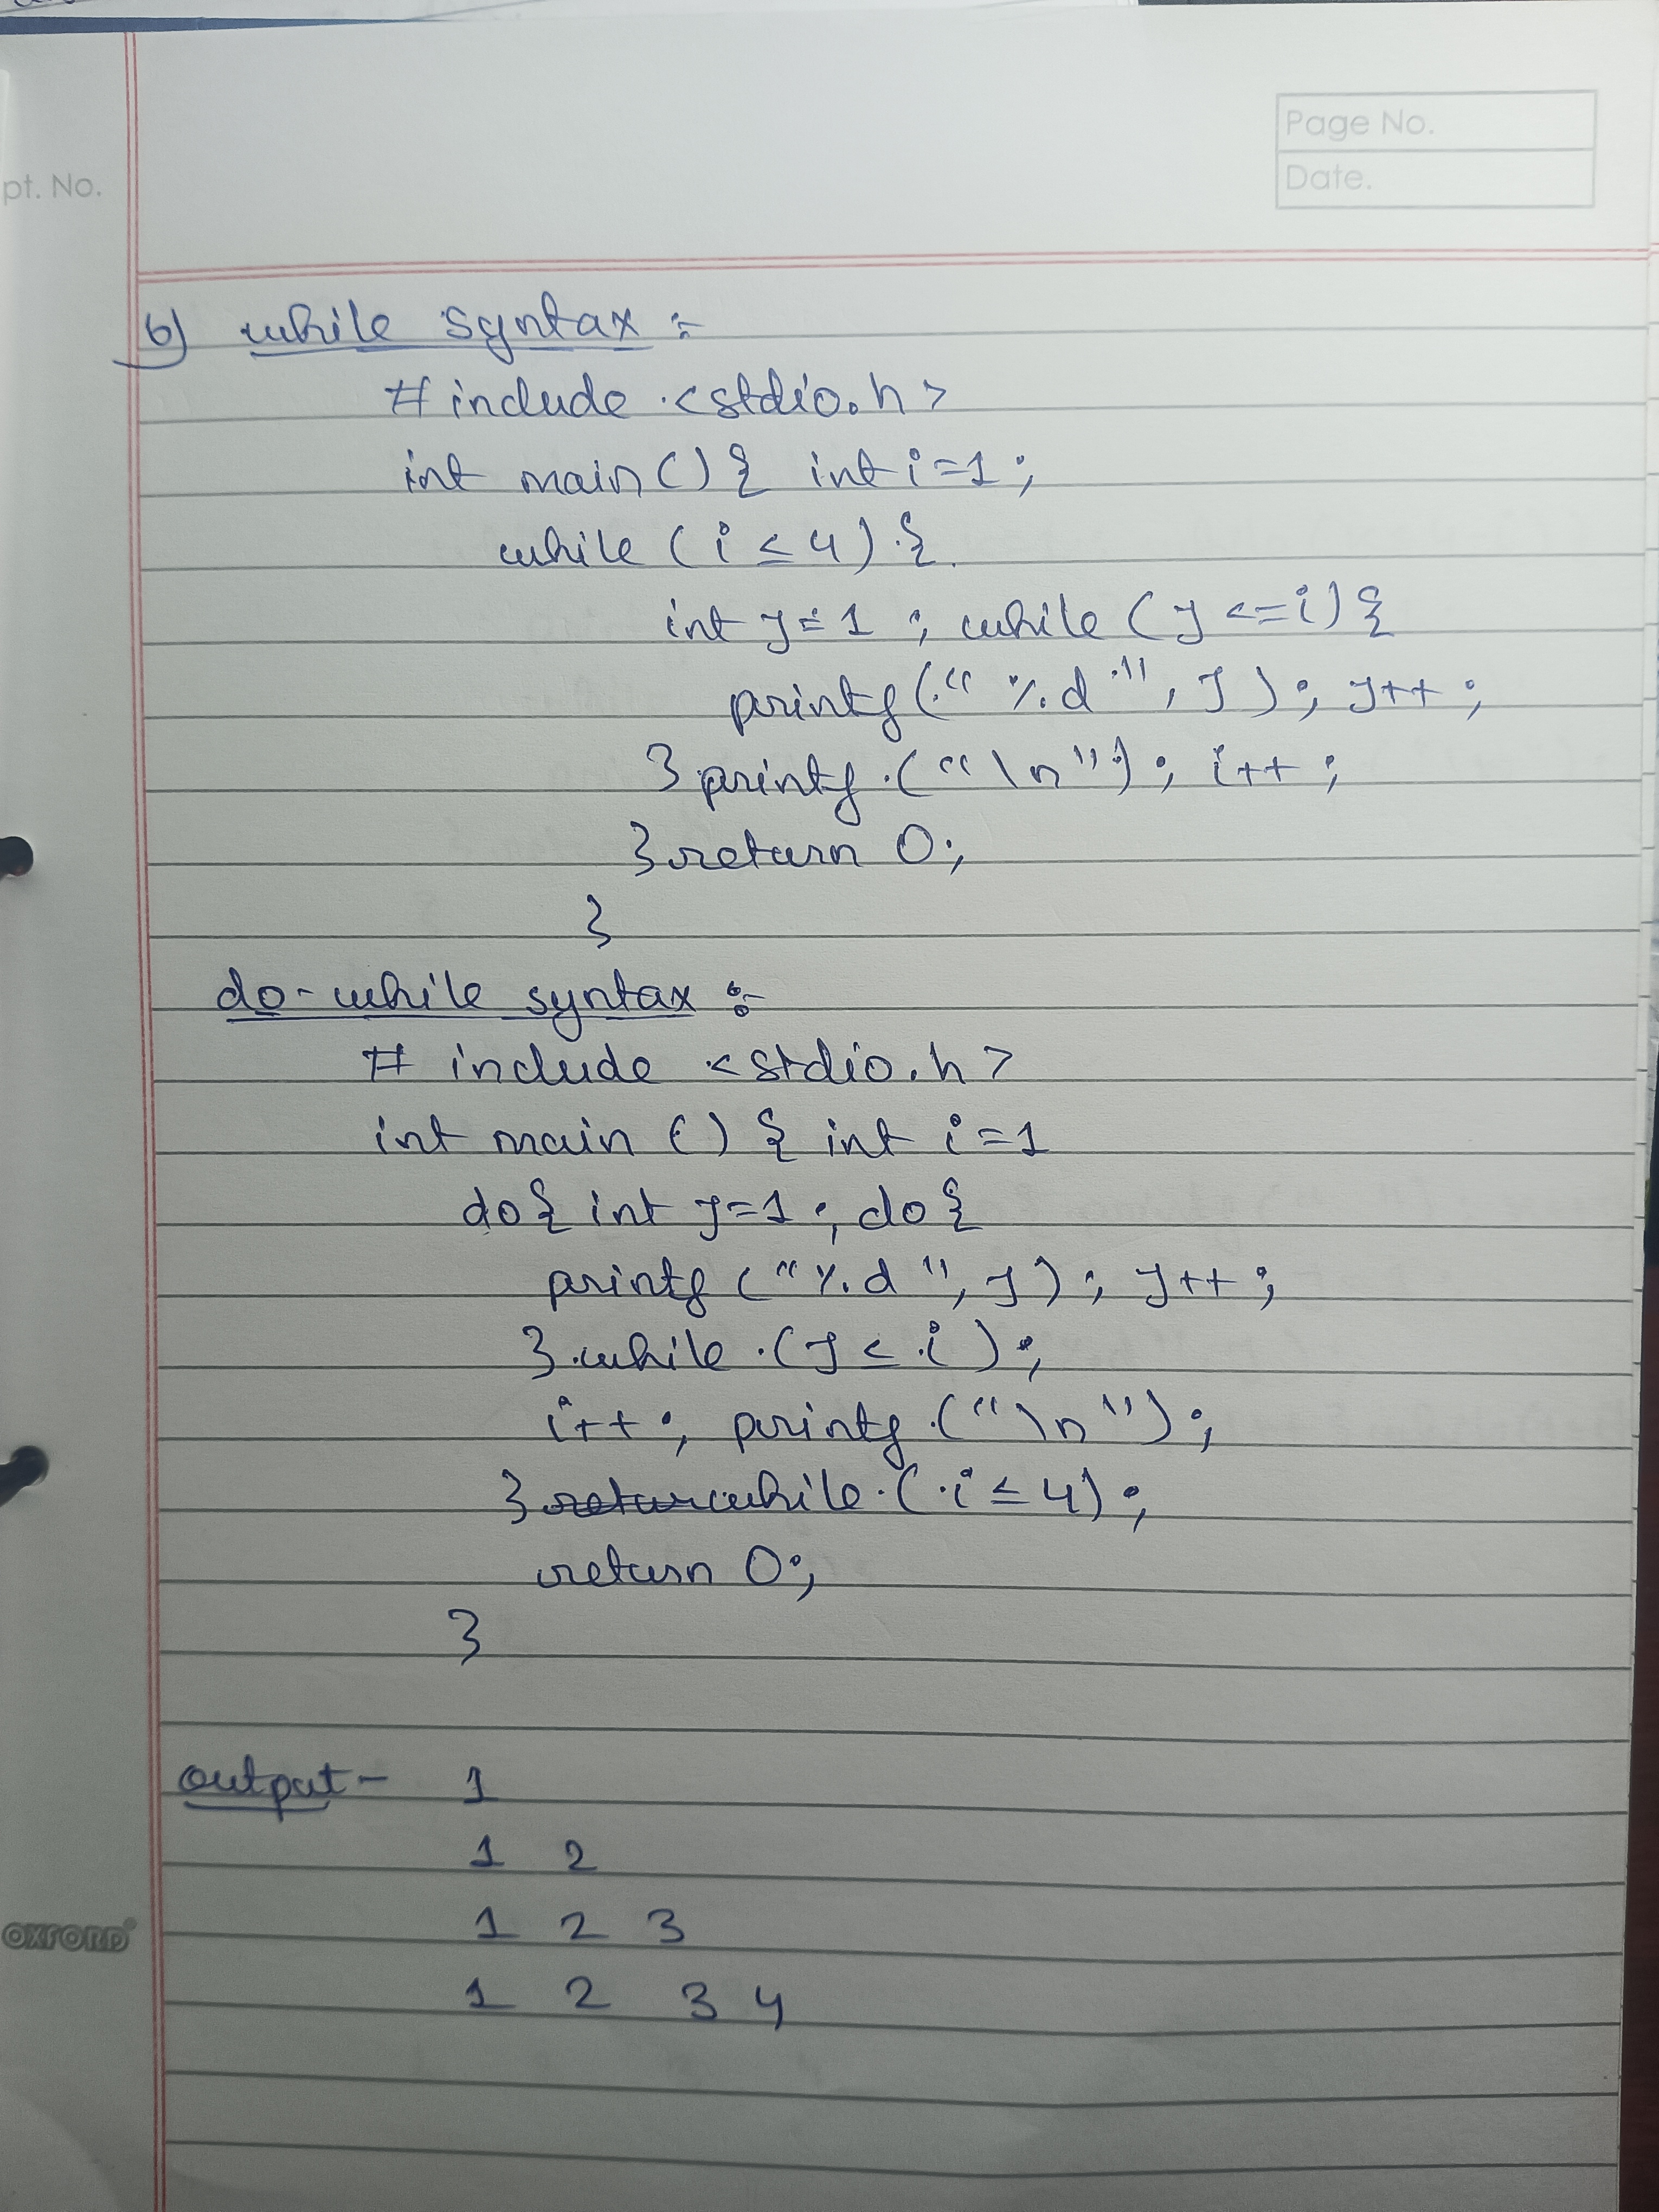 Page No.
Date.
pt. No.
6) while syntax :-
# include <stdio.h>
int main() { int i=1;
while (i ≤ 4) {
int j=1 ; while (j <=i) {
printf(" %d ", j); j++ ;
} printf("\n"); i++ ;
} return 0;
}
do-while syntax :-
# include <stdio.h>
int main () { int i=1
do{ int j=1; do {
printf ("%d ", j); j++ ;
} while (j ≤ i);
i++; printf("\n");
} retur while (i ≤ 4);
return 0;
}
output - 1
1 2
1 2 3
1 2 3 4
OXFORD